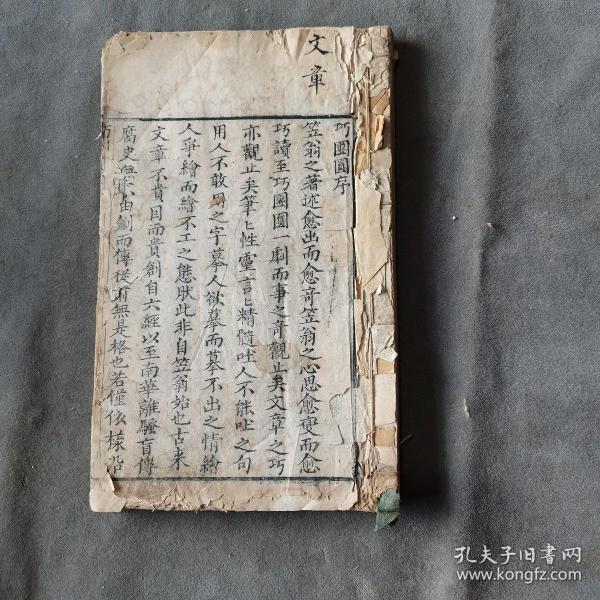 文章
巧團圓序
笠翁之著述愈出而愈奇笠翁之心思愈變而愈
巧讀至巧團圓一劇而事之奇觀止矣文章之巧
亦觀止矣筆匕性靈言匕精髓吐人不能吐之句
用人不敢用之字摹人欲摹而摹不出之情繪
人爭繪而繪不工之態狀此非自笠翁始也古來
文章不貴因而貴創自六經以至南華離騷盲傳
腐史無不由創而傳從前無是格也若僅依樣沿
孔夫子旧书网
www.kongfz.com